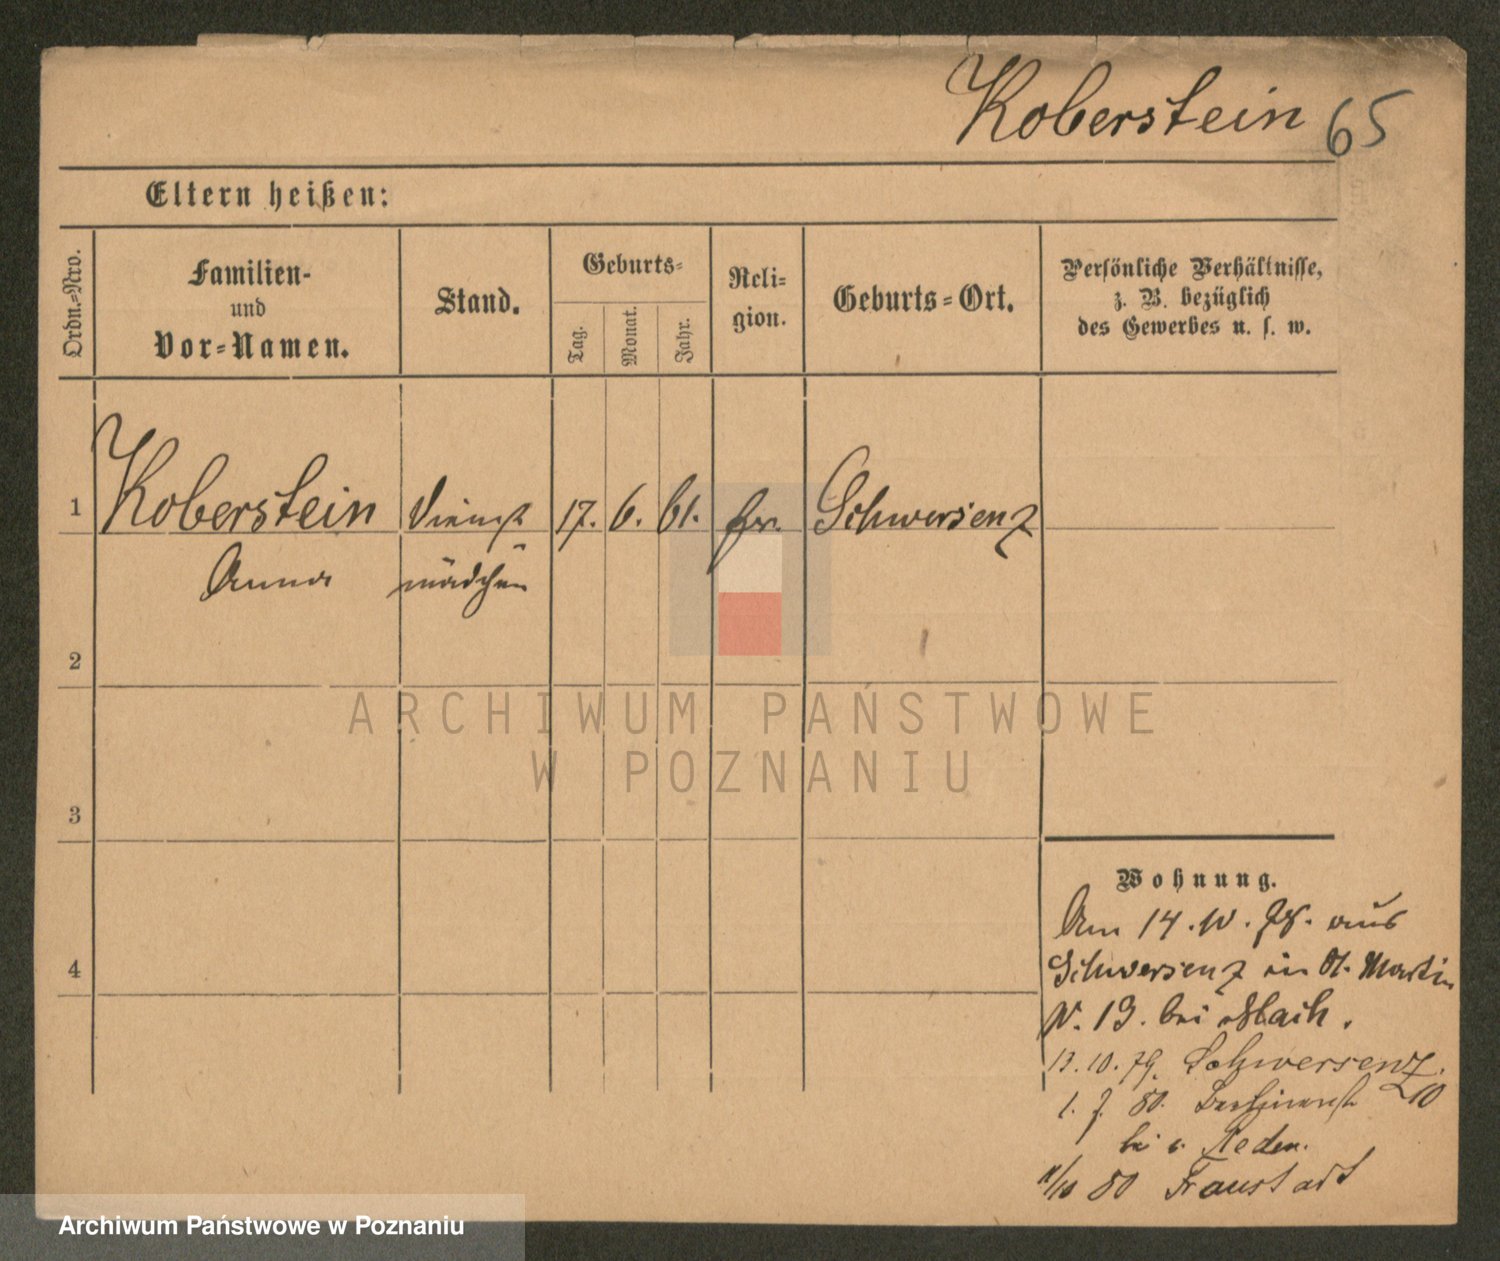 Koberstein 65
Eltern heißen:
Ordn.=Nro.
Familien-
und
Vor=Namen.
Stand.
Geburts=
Tag.
Monat.
Jahr.
Reli=
gion.
Geburts=Ort.
Persönliche Verhältnisse,
z. B. bezüglich
des Gewerbes u. s. w.
1 Koberstein Dienst 17. 6. 61. Schwersenz
Anna mädchen
2
3
4
ARCHIWUM PAŃSTWOWE
W POZNANIU
Wohnung.
Am 14. 10. 78. aus
Schwersenz in St. Martin
N. 13. bei
13. 10. 79. Schwersenz.
1. 7. 80. 10
bei v. Reden.
80 Fraustadt
Archiwum Państwowe w Poznaniu